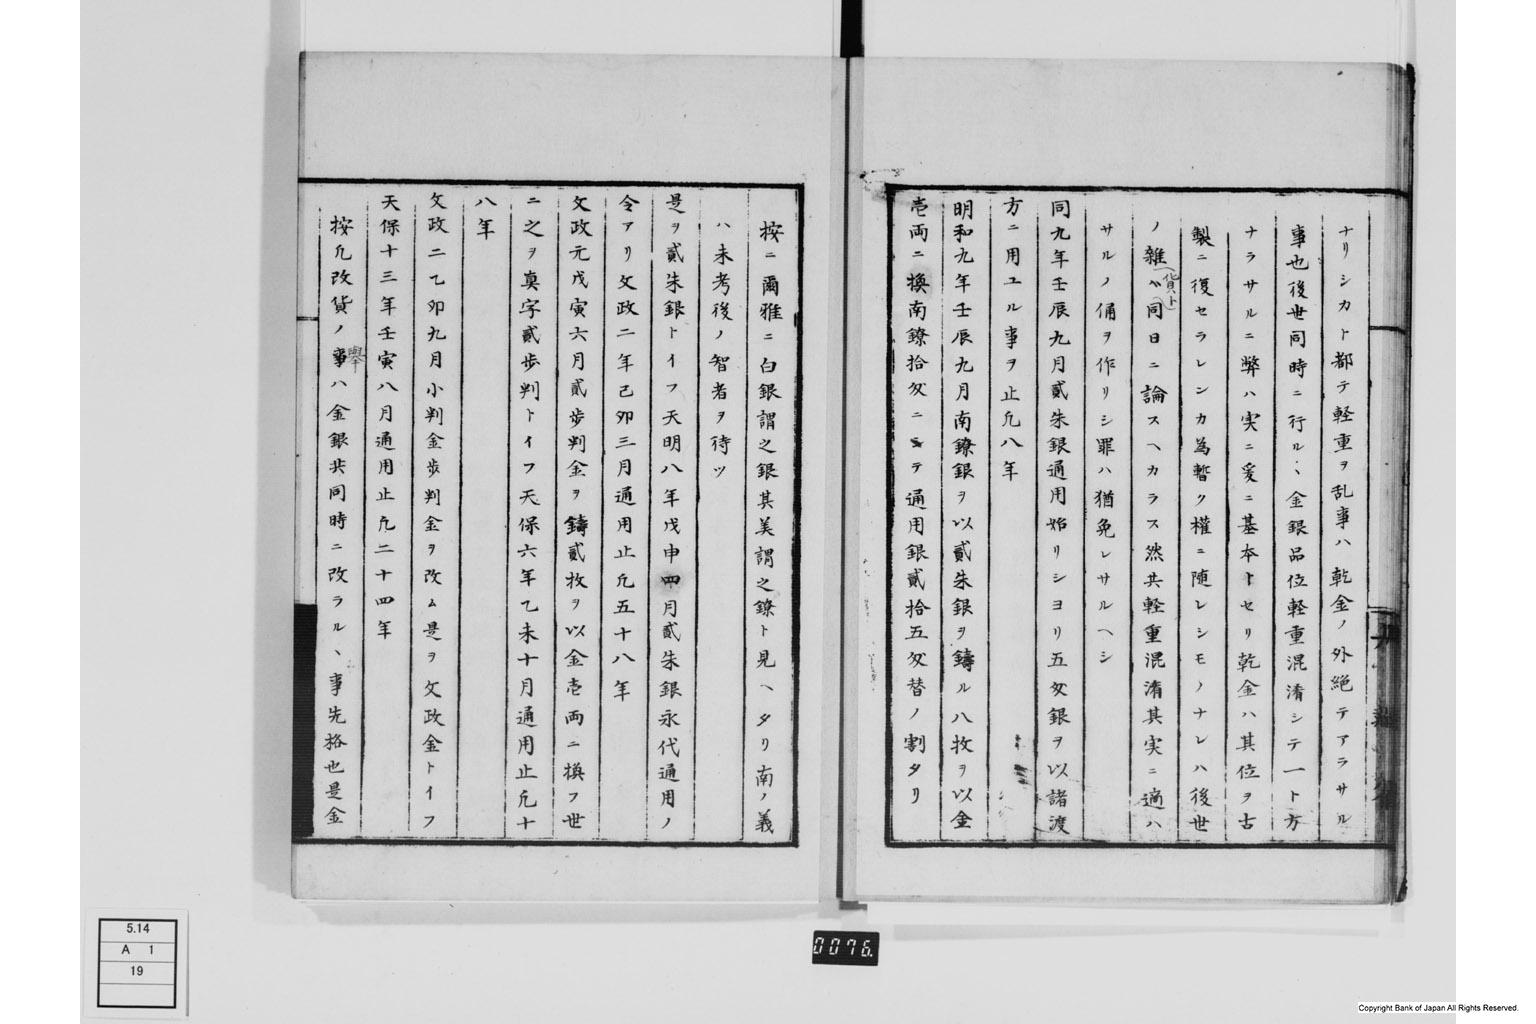 ナリシカト都テ軽重ヲ乱事ハ乾金ノ外絶テアラサル
事也後世同時ニ行ルヽ金銀品位軽重混淆シテ一ト方
ナラサルニ弊ハ実ニ爰ニ基本トセリ乾金ハ其位ヲ古
製ニ復セラレンカ為暫ク權ニ陲レシモノナレハ後世
ノ雜貨ト同日ニ論スヘカラス然共軽重混淆其実ニ適ハ
サルノ俑ヲ作リシ罪ハ猶免レサルヘシ
同九年壬辰九月貳朱銀通用始リシヨリ五匁銀ヲ以諸渡
方ニ用ユル事ヲ止凢八年
明和九年壬辰九月南鐐銀ヲ以貳朱銀ヲ鑄ル八枚ヲ以金
壱両ニ換南鐐拾匁ニテ通用銀貳拾五匁替ノ割タリ
按ニ爾雅ニ白銀謂之銀其美謂之鐐ト見ヘタリ南ノ義
ハ未考後ノ智者ヲ待ツ
是ヲ貳朱銀トイフ天明八年戊申四月貳朱銀永代通用ノ
令アリ文政二年己卯三月通用止凢五十八年
文政元戊寅六月貳歩判金ヲ鑄貳枚ヲ以金壱両ニ換フ世
ニ之ヲ真字貳歩判トイフ天保六年乙未十月通用止凢十
八年
文政二乙卯九月小判金歩判金ヲ改ム是ヲ文政金トイフ
天保十三年壬寅八月通用止凢二十四年
按凢改貨ノ事擧ハ金銀共同時ニ改ラルヽ事先格也是金
5.14
A 1
19
0076.
Copyright Bank of Japan All Rights Reserved.